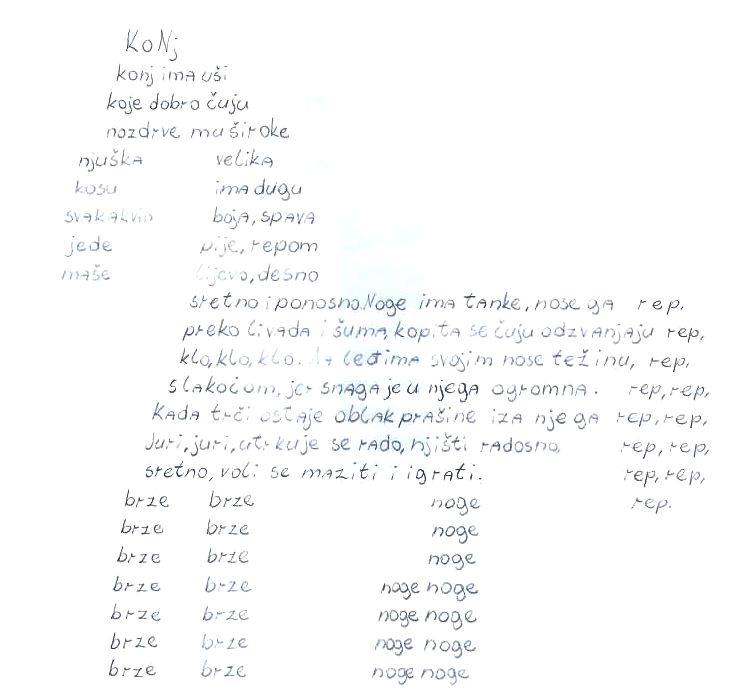 KoNj
konj ima uši
koje dobro čuju
nozdrve mu široke
njuška velika
kosu ima dugu
svakakvih boja, spava
jede pije, repom
maše lijevo, desno
sretno i ponosno. Noge ima tanke, nose ga rep,
preko livada i šuma, kopita se čuju odzvanjaju rep,
klo, klo, klo. Na leđima svojim nose težinu, rep,
slakoćom, jer snaga je u njega ogromna. rep, rep,
Kada trči ostaje oblak prašine iza njega rep, rep,
Juri, juri, utrkuje se rado, hjišti radosno, rep, rep,
sretno, voli se maziti i igrati. rep, rep,
brze brze noge rep.
brze brze noge
brze brze noge
brze brze noge noge
brze brze noge noge
brze brze noge noge
brze brze noge noge